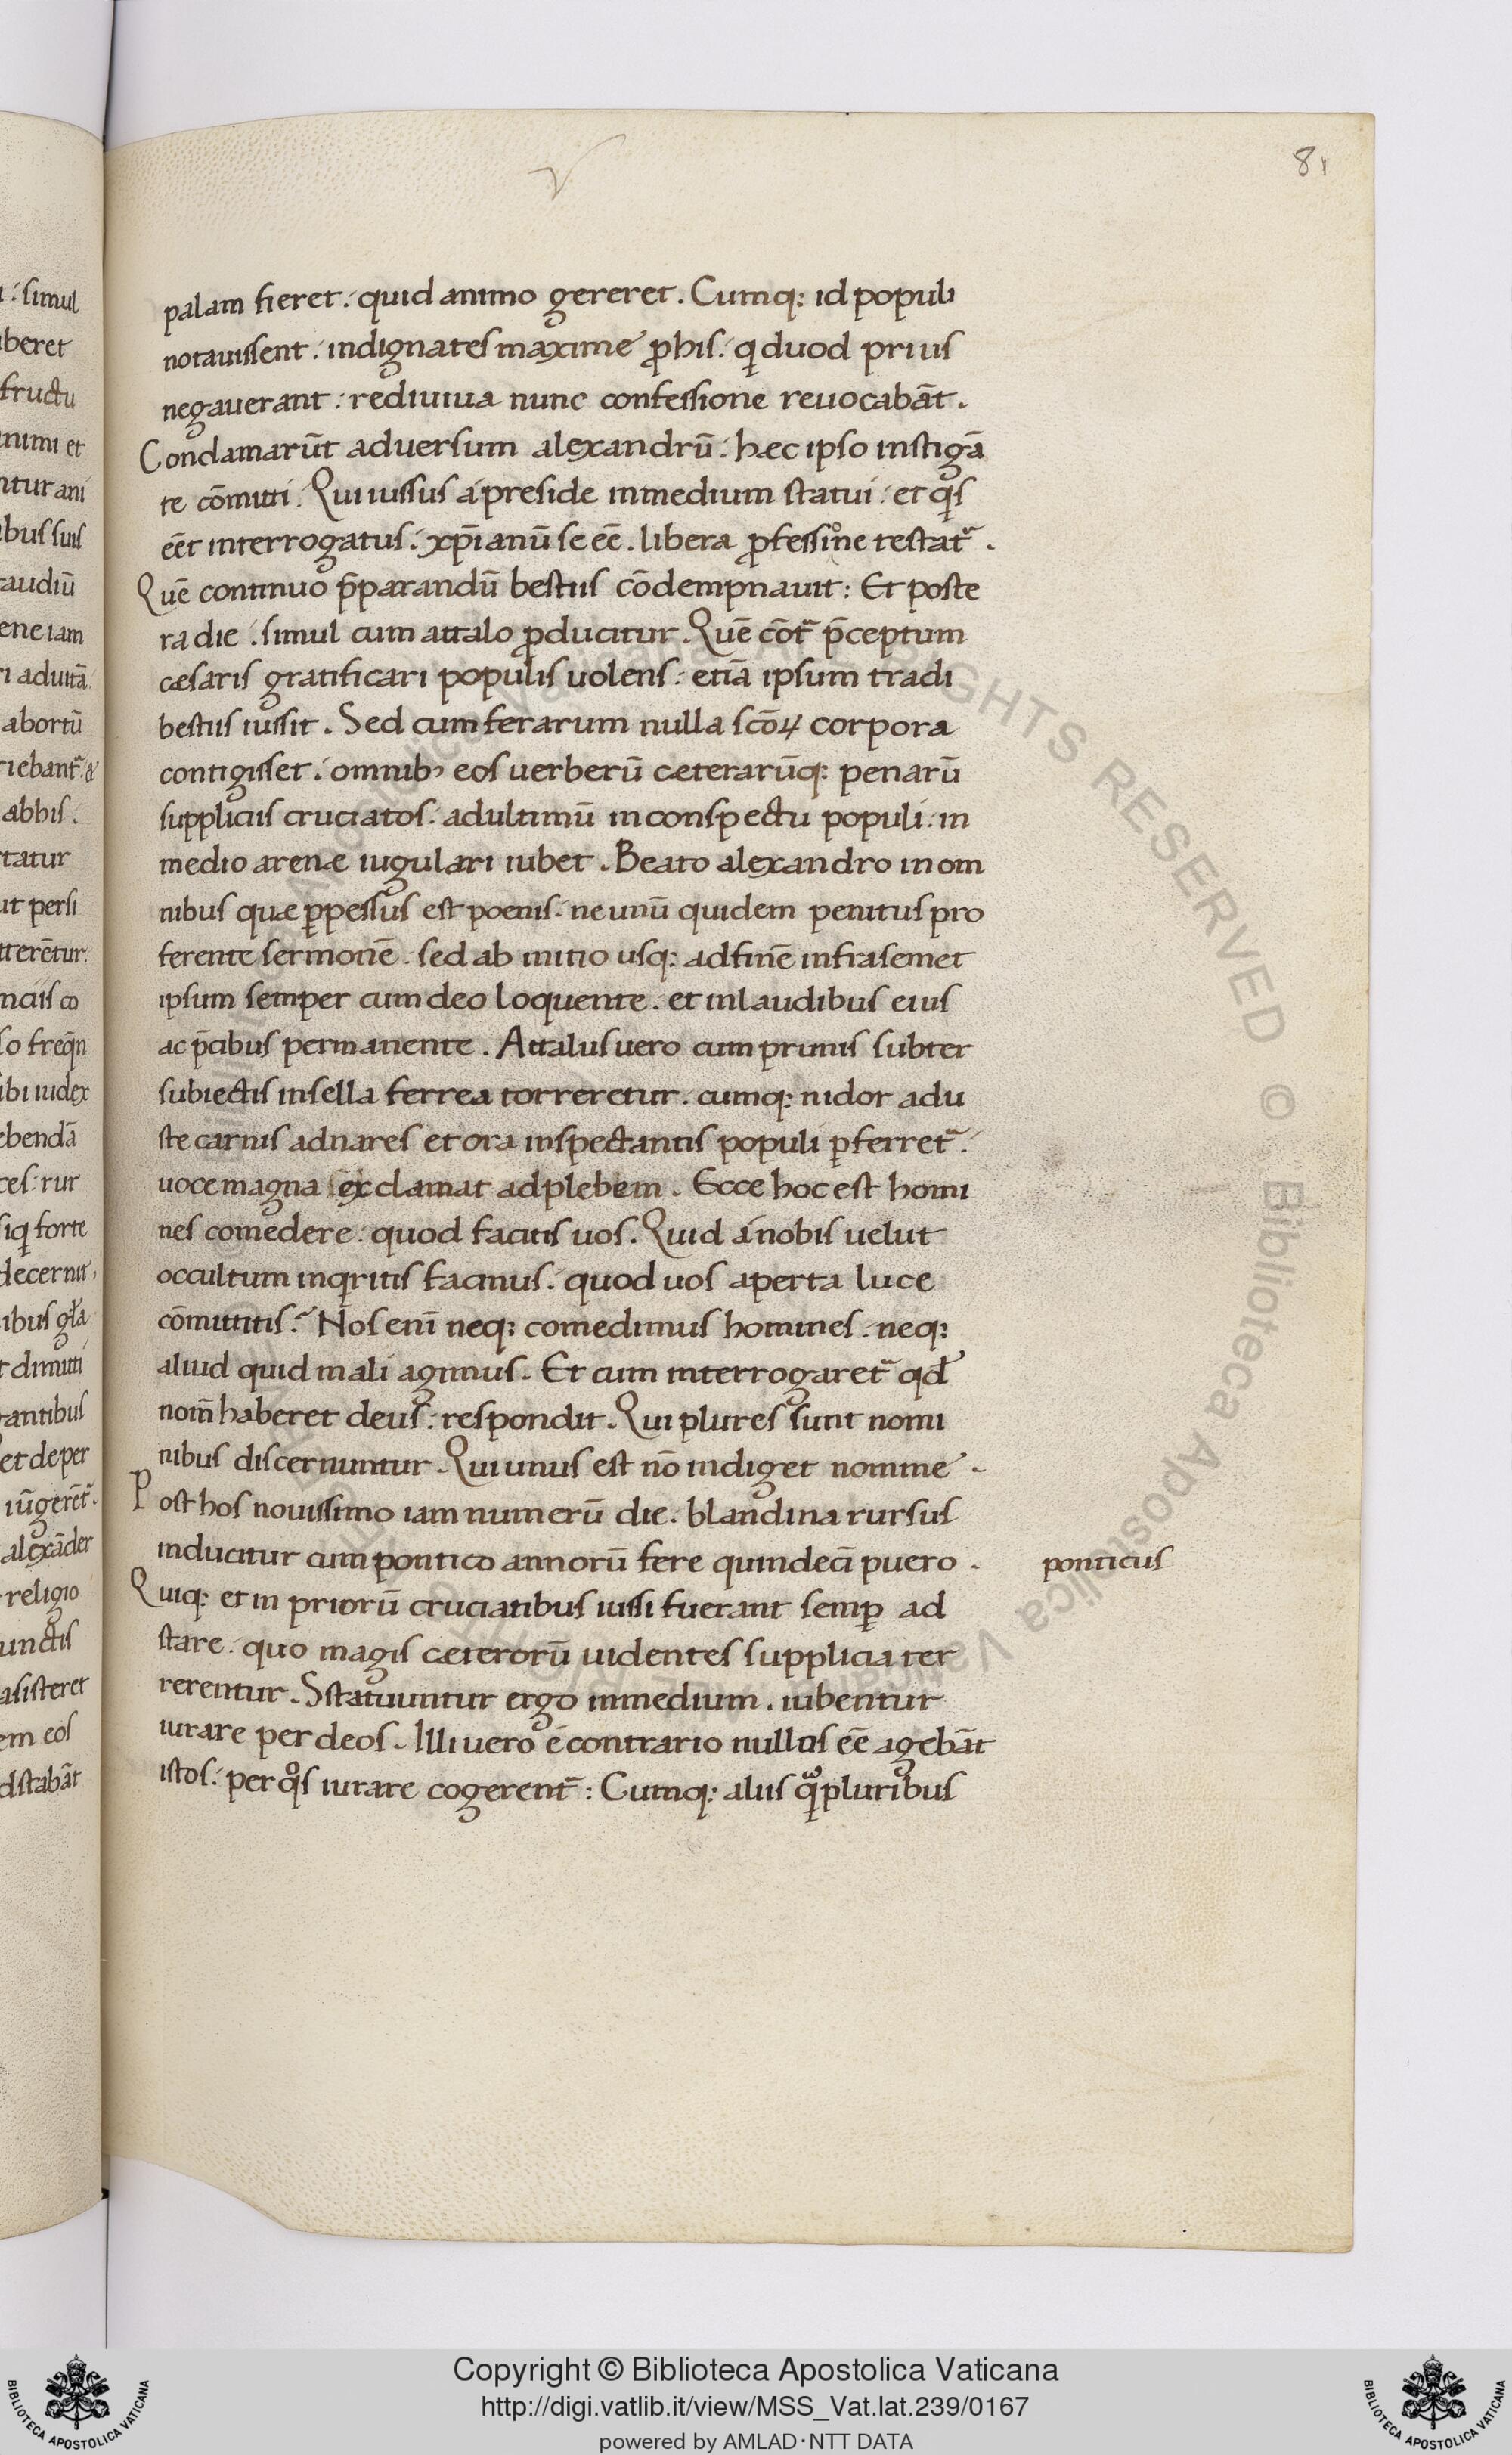 81
palam fieret. quid animo gereret. Cumq; id populi
notauissent. indignates maxime ꝓ his. q̨ duod prius
negauerant: rediuiua nunc confessione reuocabāt.
Conclamarūt aduersum alexandrū. hæc ipso instigā
te cōmitti. Qui iussus a preside in medium statui. et q̨s
eēt interrogatus. xp̄ianū se eē. libera ꝓfessione testat᷑.
Quē continuo p̄parandū bestiis cōdempnauit: Et poste
ra die. simul cum attalo ꝓducitur. Quē cōt᷑ p̄ceptum
cæsaris gratificari populis uolens. etiā ipsum tradi
bestiis iussit. Sed cum ferarum nulla scōꝝ corpora
contigisset. omnibꝰ eos uerberū cæterarūq; penarū
suppliciis cruciatos. ad ultimū in conspectu populi. in
medio arenæ iugulari iubet. Beato alexandro in om
nibus quæ ꝑpessus est poenis. ne unū quidem penitus pro
ferente sermonē. sed ab initio usq; ad finē infra semet
ipsum semper cum deo loquente. et in laudibus eius
ac p̄cibus permanente. Attalus uero cum prunis subter
subiectis in sella ferrea torreretur. cumq; nidor adu
ste carnis ad nares et ora inspectantis populi ꝑferret᷑.
uoce magna exclamat ad plebem. Ecce hoc est homi
nes comedere. quod facitis uos. Quid a nobis uelut
occultum inq̨ritis facinus. quod uos aperta luce
cōmittitis? Nos enī neq; comedimus homines. neq;
aliud quid mali agimus. Et cum interrogaret᷑ qd̄
nom̄ haberet deus: respondit. Qui plures sunt nomi
nibus discernuntur. Qui unus est nō indiget nomine.
Post hos nouissimo iam numerū die. blandina rursus
inducitur cum pontico annorū fere quindecī puero.
ponticus
Quiq; et in priorū cruciatibus iussi fuerant semꝑ ad
stare. quo magis cæterorū uidentes supplicia ter
rerentur. Sstatuuntur ergo in medium. iubentur
iurare per deos. Illi uero e contrario nullos eē agebāt
istos. per qͦs iurare cogerent᷑: Cumq; aliis q̃pluribus
Copyright © Biblioteca Apostolica Vaticana
http://digi.vatlib.it/view/MSS_Vat.lat.239/0167
powered by AMLAD·NTT DATA